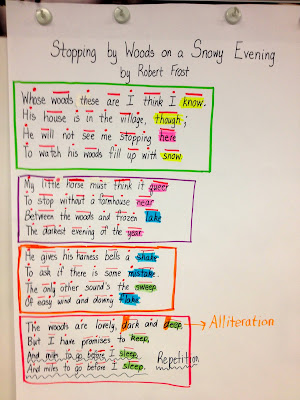 Stopping by Woods on a Snowy Evening
by Robert Frost
Whose woods these are I think I know.
His house is in the village, though;
He will not see me stopping here
To watch his woods fill up with snow.
My little horse must think it queer
To stop without a farmhouse near
Between the woods and frozen lake
The darkest evening of the year.
He gives his harness bells a shake
To ask if there is some mistake.
The only other sound's the sweep
Of easy wind and downy flake.
The woods are lovely, dark and deep, → Alliteration
But I have promises to keep,
And miles to go before I sleep,
And miles to go before I sleep. Repetition